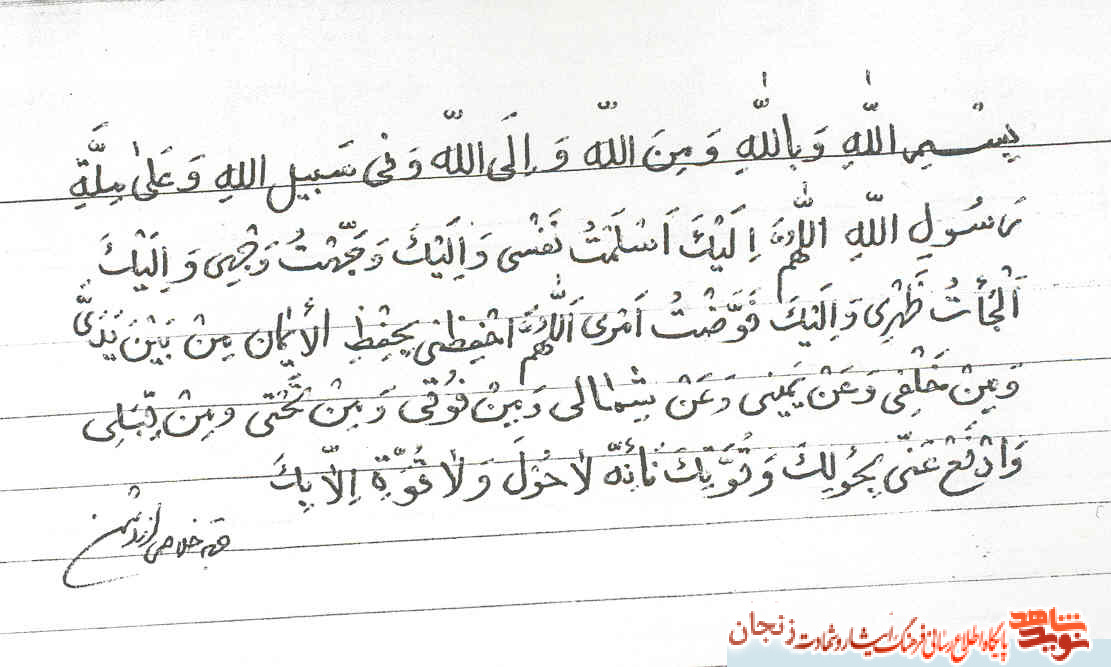 بِسْمِ اللّٰهِ وَ بِاللّٰهِ وَ مِنَ اللّٰه وَ اِلَى اللّٰه وَ فى سَبيلِ اللهِ وَ عَلىٰ مِلَّةِ
رَسُولِ اللّهِ اَللّٰهُمَّ اِلَيْكَ اَسْلَمْتُ نَفْسى وَ اِلَيْكَ وَجَّهْتُ وَجْهِى وَ اِلَيْكَ
اَلْجَأْتُ ظَهْرِى وَ اِلَيْكَ فَوَّضْتُ اَمْرى اَللّٰهُمَّ احْفِظْنى بِحِفْظِ الأيمٰان مِنْ بَيْنَ يَدَىَّ
وَ مِنْ خَلْفِى وَ عَنْ يَمينى وَ عَنْ شِمٰالى وَ مِنْ فَوُقى وَ مِنْ تَحْتى وَ مِنْ قِبَلِى
وَ ادْفَعْ عَنّى بِحُولِكَ وَ قُوَّتِكَ فَأِنَّهُ لاٰ حَوُلَ وَ لاٰ قُوَّةَ اِلّاٰ بِكَ
خلاصى از
نوید شاهد پایگاه اطلاع رسانی فرهنگ ایثار و شهادت زنجان